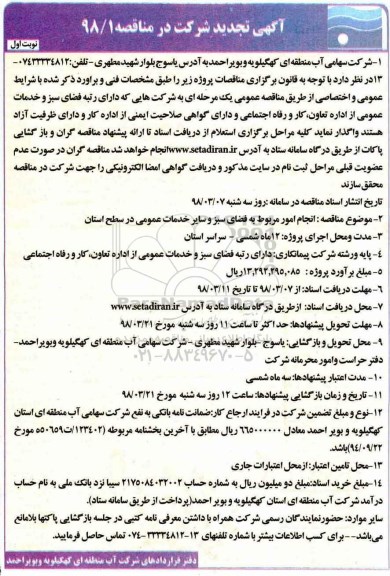 آگهی تجدید شرکت در مناقصه ۹۸/۱
نوبت اول
۱-شرکت سهامی آب منطقه ای کهگیلویه و بویراحمد به آدرس یاسوج بلوار شهید مطهری - تلفن:۰۷۴۳۳۳۳۴۸۱۲-
۱۳در نظر دارد با توجه به قانون برگزاری مناقصات پروژه زیر را طبق مشخصات فنی و براورد ذکر شده با شرایط
عمومی و اختصاصی از طریق مناقصه عمومی یک مرحله ای به شرکت هایی که دارای رتبه فضای سبز و خدمات
عمومی از اداره تعاون،کار و رفاه اجتماعی و دارای گواهی صلاحیت ایمنی از اداره کار و دارای ظرفیت آزاد
هستند واگذار نماید کلیه مراحل برگزاری استعلام از دریافت اسناد تا ارائه پیشنهاد مناقصه گران و باز گشایی
پاکات از طریق درگاه سامانه ستاد به آدرس www.setadiran.irانجام خواهد شد مناقصه گران در صورت عدم
عضویت قبلی مراحل ثبت نام در سایت مذکور و دریافت گواهی امضا الکترونیکی را جهت شرکت در مناقصه
محقق سازند
تاریخ انتشار اسناد مناقصه در سامانه :روز سه شنبه ۹۸/۰۳/۰۷
۲-موضوع مناقصه : انجام امور مربوط به فضای سبز و سایر خدمات عمومی در سطح استان
۳- مدت ومحل اجرای پروژه: ۱۲ماه شمسی - سراسر استان
۴- پایه ورشته شرکت پیمانکاری:دارای رتبه فضای سبز و خدمات عمومی از اداره تعاون،کار و رفاه اجتماعی
۵-مبلغ برآورد پروژه : ۱۳،۲۹۲،۲۹۵،۰۸۵ریال
۶-مهلت دریافت اسناد: از ۹۸/۰۳/۰۷ تا تاریخ ۹۸/۰۳/۱۱
۷- محل دریافت اسناد: ازطریق درگاه سامانه ستاد به آدرس www.setadiran.ir
۸-مهلت تحویل پیشنهادها: حداکثر تا ساعت ۱۱ روز سه شنبه مورخ ۹۸/۰۳/۲۱
۹- محل تحویل و بازگشایی: یاسوج - بلوار شهید مطهری - شرکت سهامی آب منطقه ای کهگیلویه وبویراحمد-
دفتر حراست وامور محرمانه شرکت
۱۰- مدت اعتبار پیشنهادها: سه ماه شمسی
۱۱- تاریخ و زمان بازگشایی پیشنهادها: ساعت ۱۲ روز سه شنبه مورخ ۹۸/۰۳/۲۱
۱۲-نوع و مبلغ تضمین شرکت در فرایند ارجاع کار:ضمانت نامه بانکی به نفع شرکت سهامی آب منطقه ای استان
کهگیلویه و بویر احمد معادل ۶۶۵۰۰۰۰۰۰ ریال مطابق با آخرین بخشنامه مربوطه (۱۲۳۴۰۲/ت۵۰۶۵۹ه مورخ
۹۴/۰۹/۲۲)باشد.
۱۳-محل تامین اعتبار:ازمحل اعتبارات جاری
۱۴-مبلغ خرید اسناد:مبلغ دو میلیون ریال به شماره حساب ۲۱۷۵۰۸۴۰۳۲۰۰۲ سیبا نزد بانک ملی به نام حساب
درآمد شرکت آب منطقه ای استان کهگیلویه و بویر احمد(پرداخت از طریق سامانه ستاد).
سایر موارد: حضورنمایندگان رسمی شرکت همراه با داشتن معرفی نامه کتبی در جلسه بازگشایی پاکتها بلامانع
می‌باشد-- برای کسب اطلاعات بیشتر با شماره تلفنهای ۱۳-۳۳۳۳۴۸۱۲-۰۷۴ تماس حاصل فرمایید.
دفتر قراردادهای شرکت آب منطقه ای کهگیلویه وبویراحمد
۰۲۱-۸۸۳۴۹۶۷۰-۵